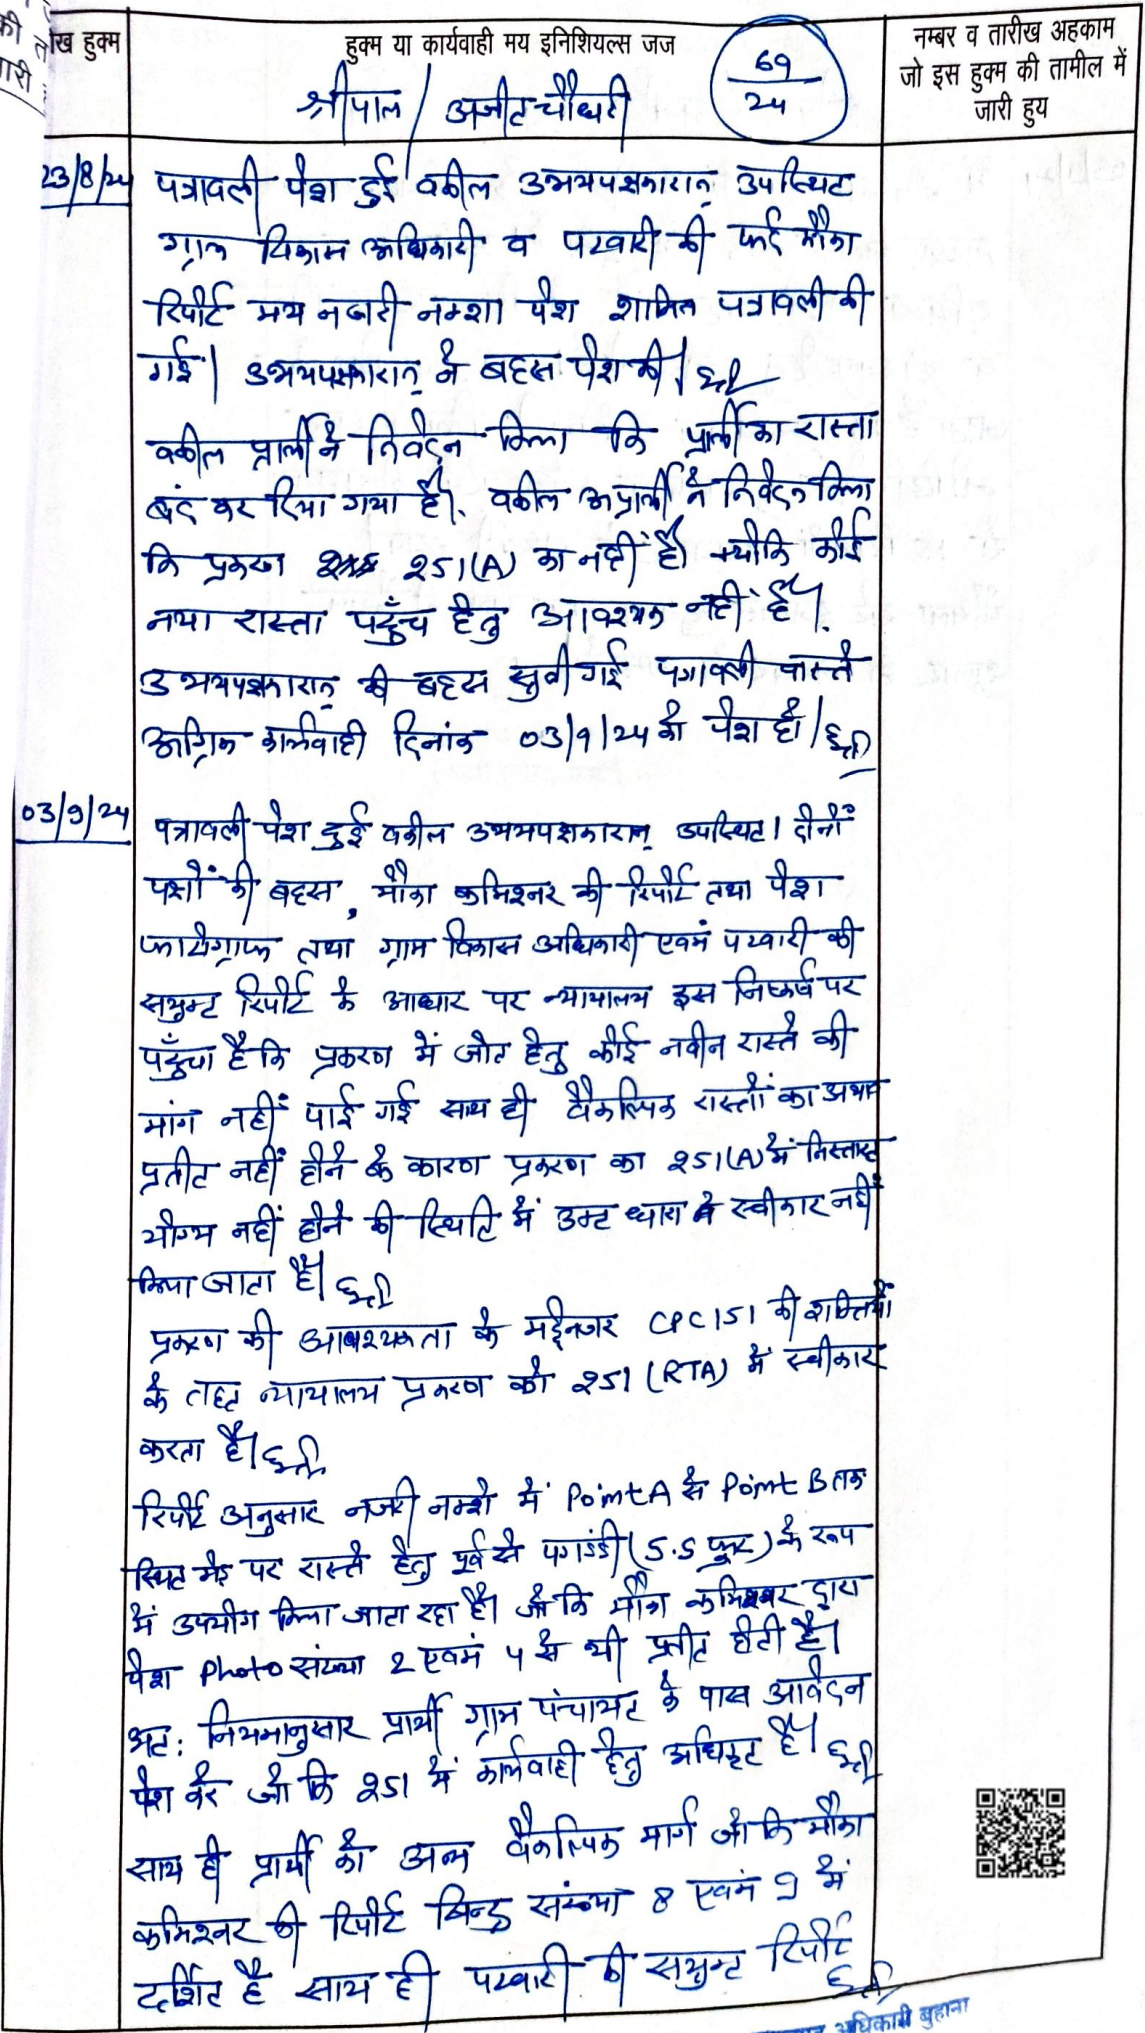 की
तारीख हुक्म
हुक्म या कार्यवाही मय इनिशियल्स जज
नम्बर व तारीख अहकाम
जो इस हुक्म की तामील में
जारी हुय
श्रीपाल / अजीत चौधरी
69
24
23/8/24
पत्रावली पेश हुई वकील उभयपक्षकारान् उपस्थित
ग्राम विकास अधिकारी व पटवारी की फर्द मौका
रिपोर्ट मय नजरी नक्शा पेश शामिल पत्रावली की
गई। उभयपक्षकारान् ने बहस पेश की।
वकील प्रार्थी ने निवेदन किया कि प्रार्थी का रास्ता
बंद कर दिया गया है। वकील अप्रार्थी ने निवेदन किया
कि प्रकरण 251(A) का नहीं है। क्योंकि कोई
नया रास्ता पहुँच हेतु आवश्यक नहीं है।
उभयपक्षकारान् की बहस सुनी गई पत्रावली वास्ते
अग्रिम कार्यवाही दिनांक 03/9/24 को पेश हो।
03/9/24
पत्रावली पेश हुई वकील उभयपक्षकारान् उपस्थित। दोनों
पक्षों की बहस, मौका कमिश्नर की रिपोर्ट तथा पेश
फोटोग्राफ तथा ग्राम विकास अधिकारी एवमं पटवारी की
सयुक्त रिपोर्ट के आधार पर न्यायालय इस निष्कर्ष पर
पहुँचा है कि प्रकरण में जोत हेतु कोई नवीन रास्ते की
मांग नहीं पाई गई साथ ही वैकल्पिक रास्तों का अभाव
प्रतीत नहीं होने के कारण प्रकरण का 251(A) में निस्तारण
योग्य नहीं होने की स्थिति में उक्त धारा में स्वीकार नहीं
किया जाता है।
प्रकरण की आवश्यकता के मद्देनजर CPC 151 की शक्तियों
के तहत न्यायालय प्रकरण को 251 (RTA) में स्वीकार
करता है।
रिपोर्ट अनुसार नजरी नक्शे में Point A से Point B तक
स्थित मेड़ पर रास्ते हेतु पूर्व से पगडंडी (5.5 फुट) के रूप
में उपयोग किया जाता रहा है। जो कि मौका कमिश्नर द्वारा
पेश Photo संख्या 2 एवमं 4 से भी प्रतीत होती है।
अत: नियमानुसार प्रार्थी ग्राम पंचायत के पास आवेदन
पेश करे जो कि 251 में कार्यवाही हेतु अधिकृत है।
साथ ही प्रार्थी को अन्य वैकल्पिक मार्ग जो कि मौका
कमिश्नर की रिपोर्ट बिन्दु संख्या 8 एवमं 9 में
दर्शित है साथ ही पटवारी की सयुक्त रिपोर्ट
अधिकारी बुहाना